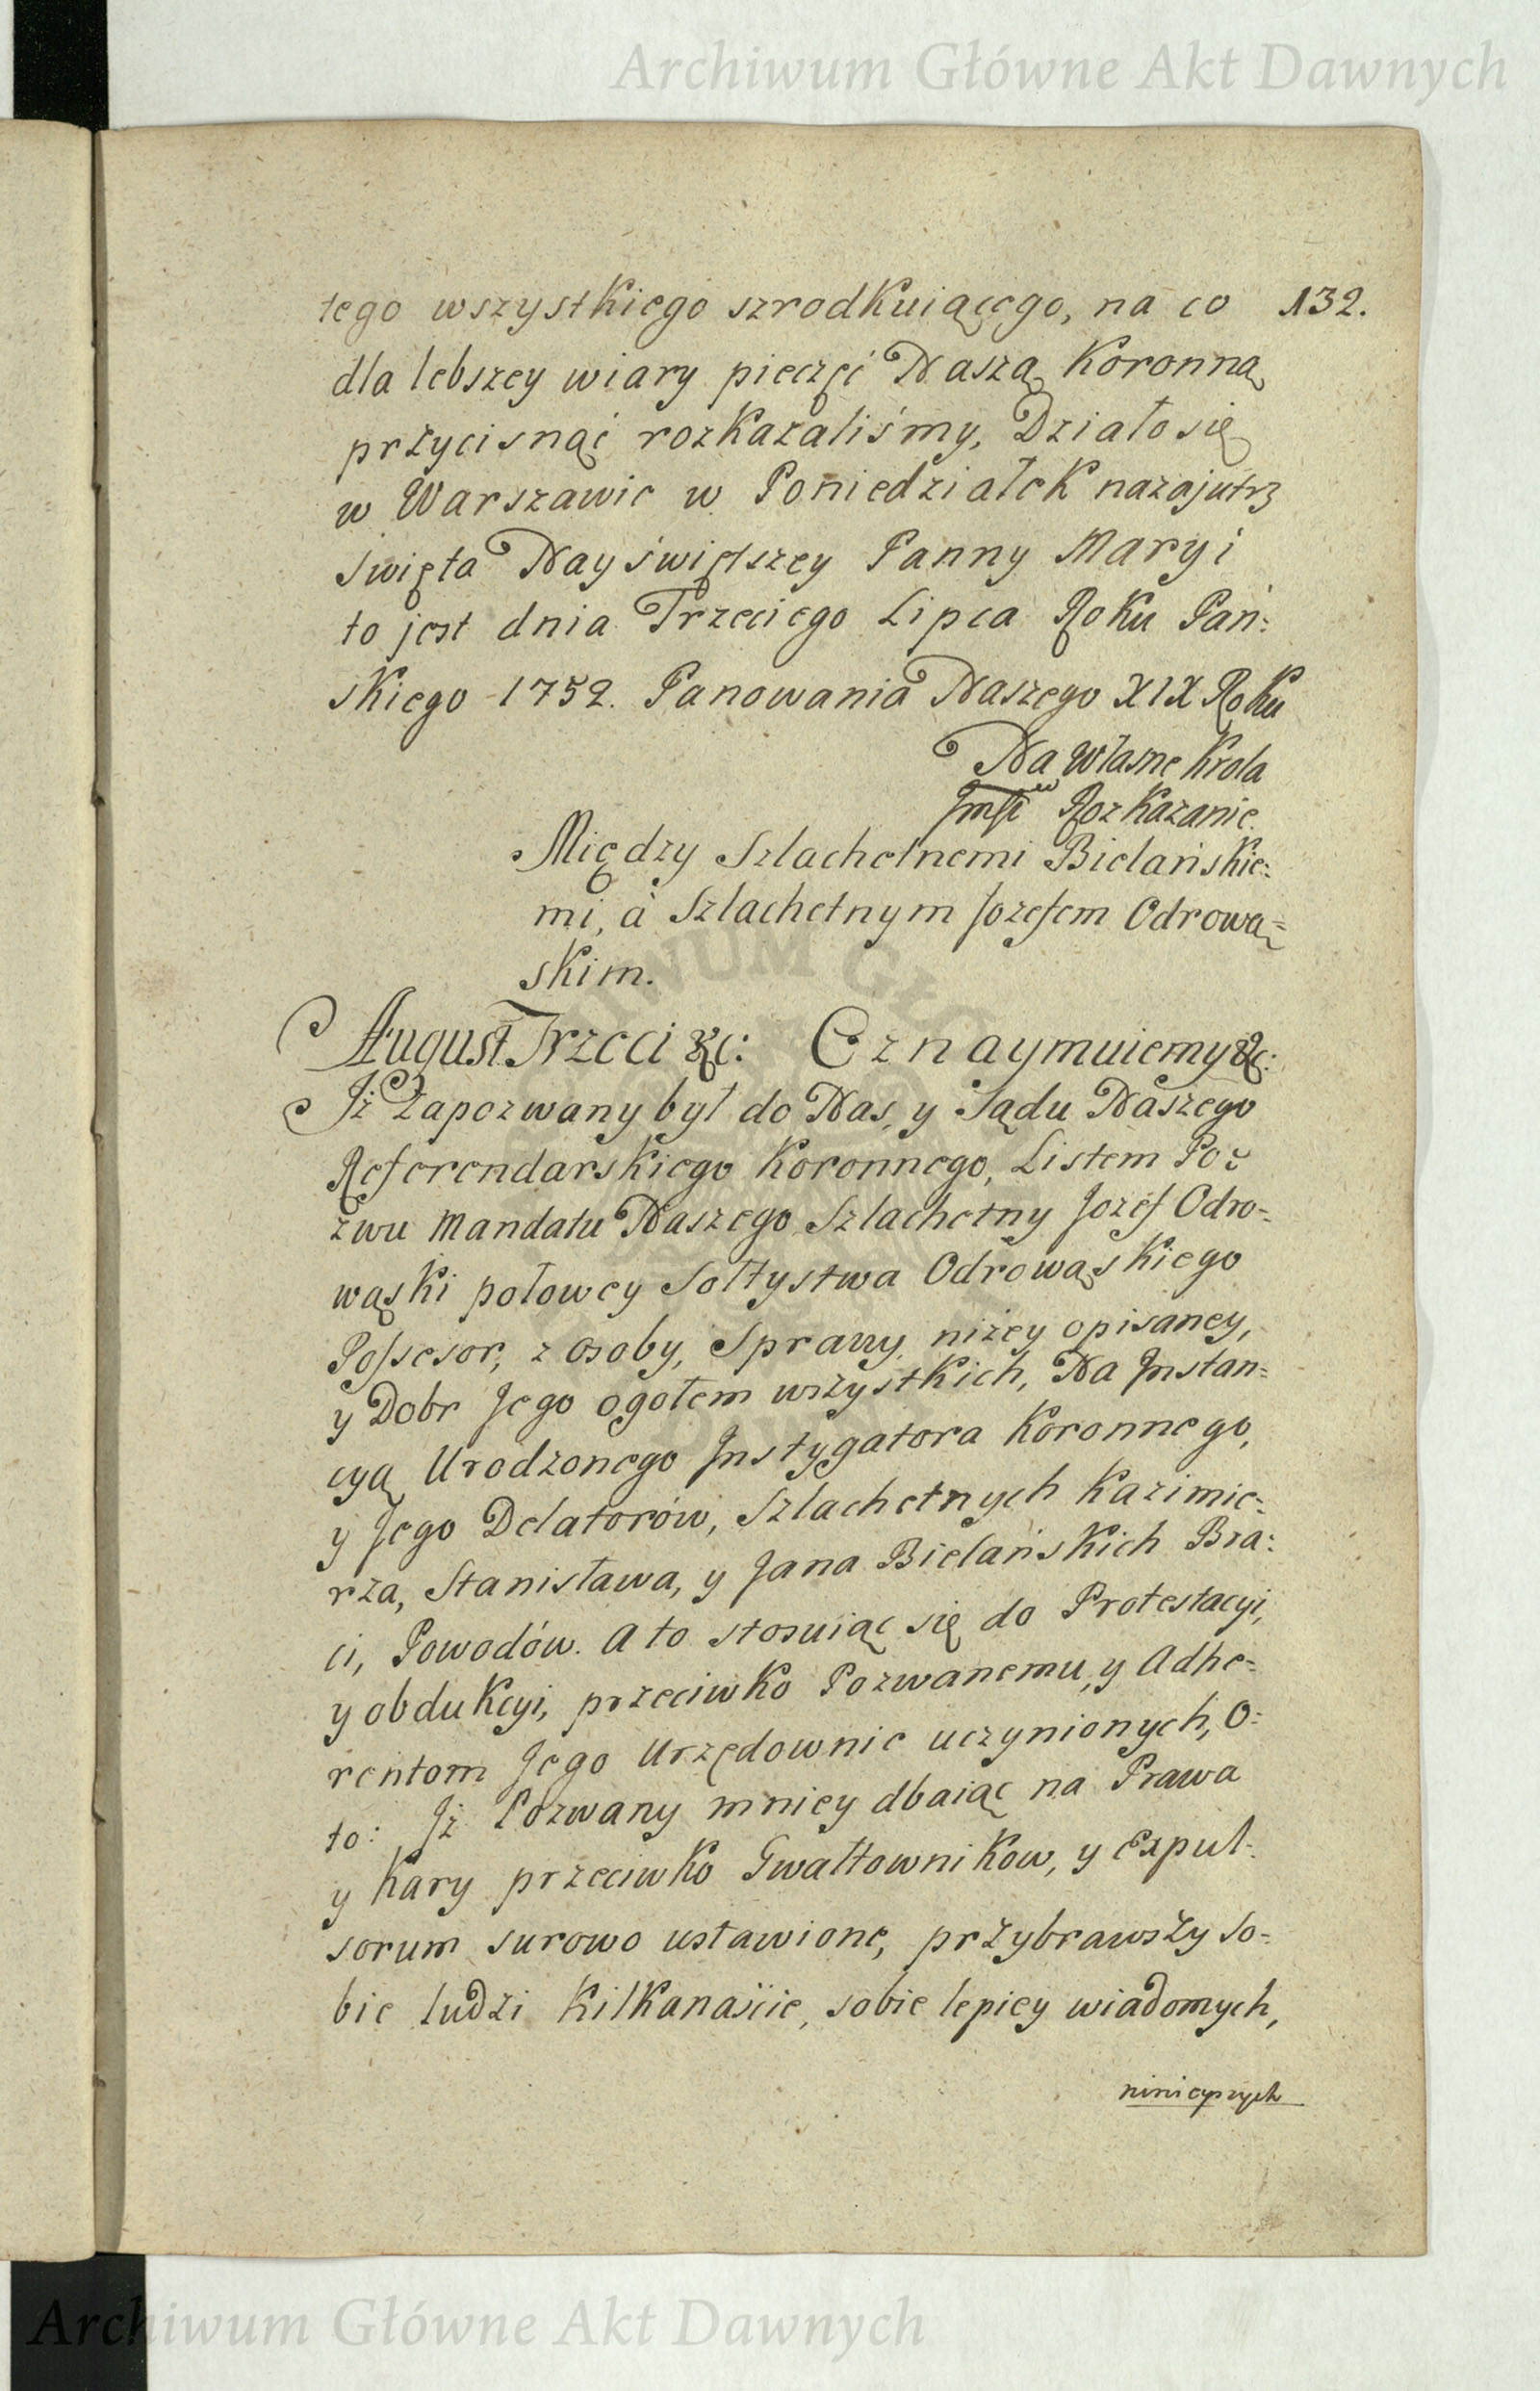 Archiwum Główne Akt Dawnych
tego wszystkiego szrodkuiącego, na co 132.
dla lebszey wiary pieczęć Naszą Koronną
przycisnąć rozkazaliśmy, Działo się
w Warszawie w Poniedziałek nazajutrz
święta Nayświętszey Panny Maryi
to jest dnia Trzeciego Lipca Roku Pań:
skiego 1752. Panowania Naszego XIX Roku
Na Własne Krola
Jmśi Rozkazanie.
Między Szlachetnemi Bielańskie:
mi, à Szlachetnym Jozefem Odrową=
skim.
August Trzeci &c: Oznaymuiemy &c:
Jż Zapozwany był do Nas, y Sądu Naszego
Referendarskiego Koronnego, Listem Po=
zwu Mandatu Naszego Szlachetny Jozéf Odro=
wąski połowey Sołtystwa Odrowąskiego
Possesor, z osoby, Sprawy, niżey opisaney,
y Dobr Jego ogołem wszystkich, Na Jnstan=
cyą Urodzonego Jnstygatora Koronnego,
y Jego Delatorów, Szlachetnych Kazimie=
rza, Stanisława, y Jana Bielańskich Bra:
ci, Powodów. A to stosuiąc się do Protestacyi,
y obdukcyi, przeciwko Pozwanemu, y Adhe=
rentom Jego Urzędownie uczynionych, O:
to: Jż Pozwany mniey dbaiąc na Prawa
y Kary przeciwko Gwałtownikow, y Expul=
sorum surowo ustawione, przybrawszy so=
bie ludzi Kilkanaście, sobie lepiey wiadomych,
Archiwum Główne Akt Dawnych